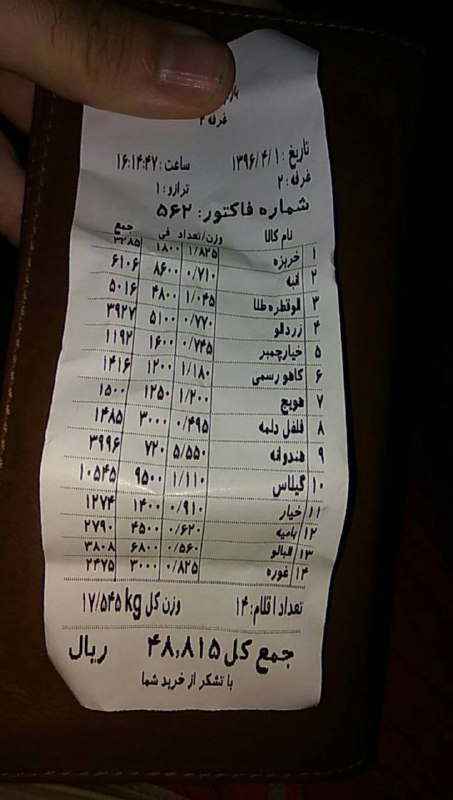 غرفه ۲
تاریخ : ۱۳۹۶/۴/۱ ساعت : ۱۶:۱۴:۴۷
غرفه : ۲ ترازو : ۱
شماره فاکتور: ۵۶۲
نام کالا وزن/تعداد فی جمع
۱ خربزه ۱/۸۲۵ ۱۸۰۰ ۳۲۸۵
۲ انبه ۰/۷۱۰ ۸۶۰۰ ۶۱۰۶
۳ الوقطره طلا ۱/۰۴۵ ۴۸۰۰ ۵۰۱۶
۴ زردالو ۰/۷۷۰ ۵۱۰۰ ۳۹۲۷
۵ خیارچمبر ۰/۷۴۵ ۱۶۰۰ ۱۱۹۲
۶ کاهورسمی ۱/۱۸۰ ۱۲۰۰ ۱۴۱۶
۷ هویج ۱/۲۰۰ ۱۲۵۰ ۱۵۰۰
۸ فلفل دلمه ۰/۴۹۵ ۳۰۰۰ ۱۴۸۵
۹ هندوانه ۵/۵۵۰ ۷۲۰ ۳۹۹۶
۱۰ گیلاس ۱/۱۱۰ ۹۵۰۰ ۱۰۵۴۵
۱۱ خیار ۰/۹۱۰ ۱۴۰۰ ۱۲۷۴
۱۲ بامیه ۰/۶۲۰ ۴۵۰۰ ۲۷۹۰
۱۳ البالو ۰/۵۶۰ ۶۸۰۰ ۳۸۰۸
۱۴ غوره ۰/۸۲۵ ۳۰۰۰ ۲۴۷۵
تعداد اقلام: ۱۴ وزن کل ۱۷/۵۴۵ kg
جمع کل ۴۸,۸۱۵ ریال
با تشکر از خرید شما